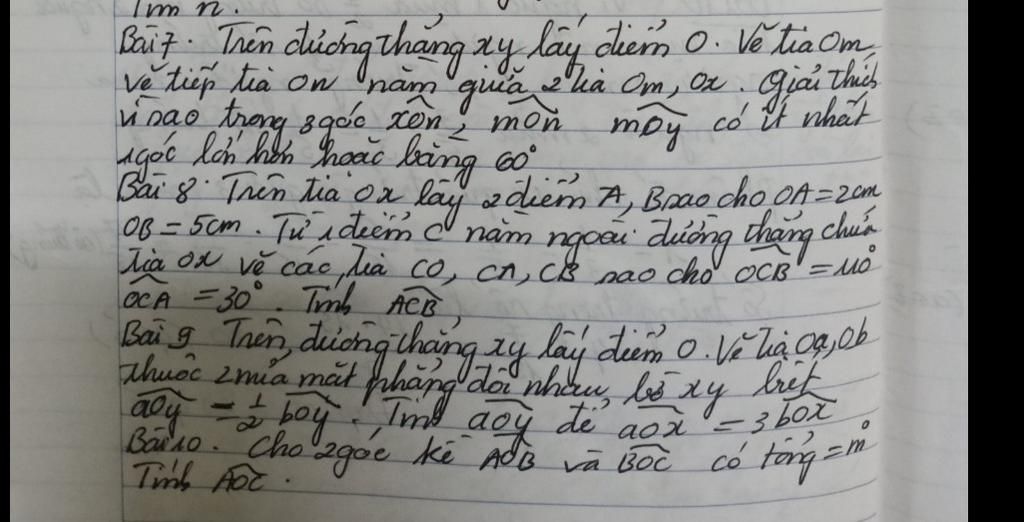 Tìm n.
Bài 7. Trên đường thẳng xy lấy điểm O. Vẽ tia Om
vẽ tiếp tia On nằm giữa 2 tia Om, Ox. Giải thích
vì sao trong 3 góc xOn, mOn mOy có ít nhất
1 góc lớn hơn hoặc bằng 60°
Bài 8. Trên tia Ox lấy 2 điểm A, B sao cho OA = 2cm
OB = 5cm. Từ 1 điểm C nằm ngoài đường thẳng chứa
tia Ox vẽ các tia CO, CA, CB sao cho OCB = 110°
OCA = 30°. Tính ACB
Bài 9 Trên đường thẳng xy lấy điểm O. Vẽ tia Oa, Ob
thuộc 2 nửa mặt phẳng đối nhau, bờ xy biết
aOy = 1/2 bOy. Tính aOy để aOx = 3 bOx
Bài 10. Cho 2 góc kề AOB và BOC có tổng = m°
Tính AOC.